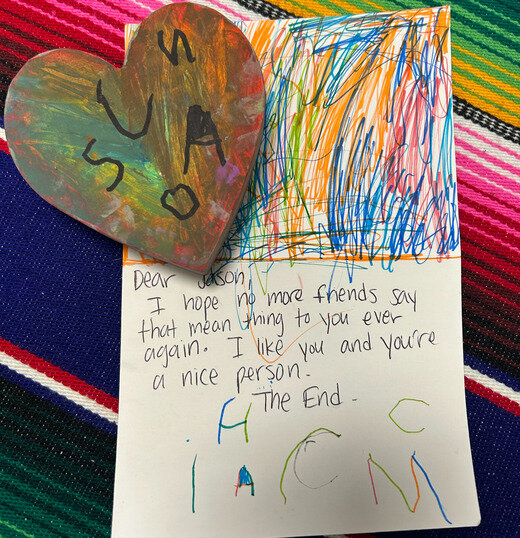 N
J A
S O
Dear Jason,
I hope no more friends say
that mean thing to you ever
again. I like you and you're
a nice person.
The End -
H C
i A C M